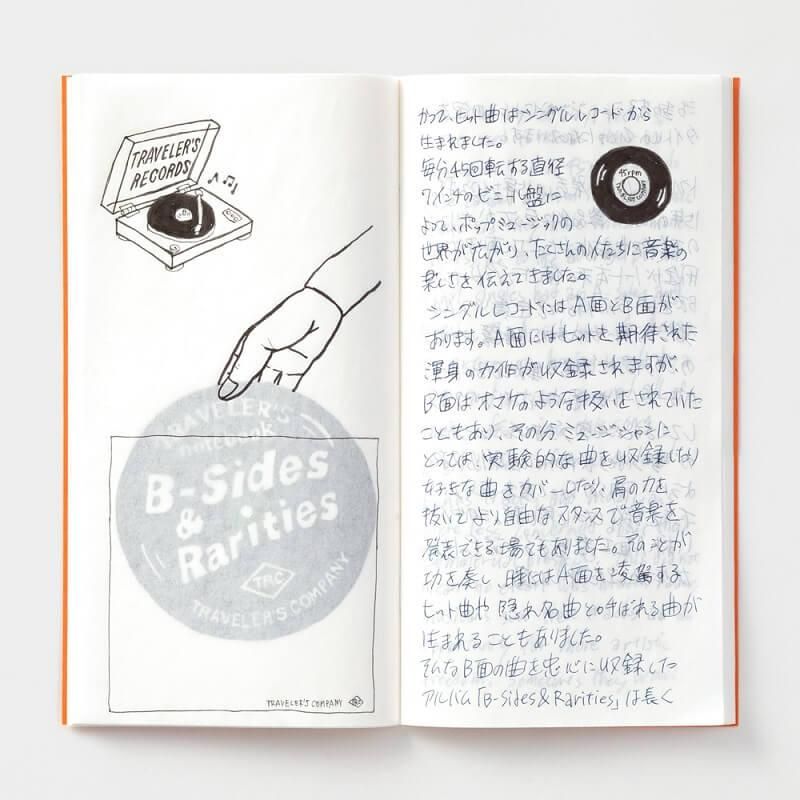 TRAVELER'S
RECORDS
TRAVELER'S
notebook
B-Sides
&
Rarities
TRC
TRAVELER'S COMPANY
TRAVELER'S COMPANY
かつて、ヒット曲はシングルレコードから
生まれました。
毎分45回転する直径
7インチのビニール盤に
よって、ポップミュージックの
世界が広がり、たくさんの人たちに音楽の
楽しさを伝えてきました。
シングルレコードにはA面とB面が
あります。A面にはヒットを期待された
渾身の力作が収録されますが、
B面はオマケのような扱いをされていた
こともあり、その分ミュージシャンに
とっては、実験的な曲を収録したり
好きな曲をカバーしたり、肩の力を
抜いてより自由なスタンスで音楽を
発表できる場でもありました。そのことが
功を奏し、時にはA面を凌駕する
ヒット曲や隠れ名曲と呼ばれる曲が
生まれることもありました。
そんなB面の曲を中心に収録した
アルバム「B-Sides&Rarities」は長く
45rpm
TRAVELER'S COMPANY